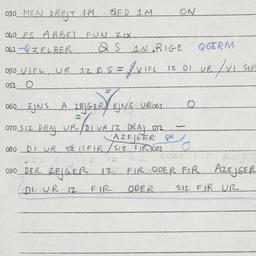 030 MEN DREJT IM JED IM ON
040 ES ARBET FUN ZIX
041 -QZELBER QS IN RIGE QGERM
050 VIFL UR IZ ES = / VIFL IZ DI UR / VI
051 O
060 EJNS A ZEJGER / EJNS UR 061 O
070 SIZ DRAJ UR / DI UR IZ DRAJ 072 —
AZEJGER
080 DI UR IZ FIR / SIZ FIR 081 O
090 DER ZEJGER IZ FIR ODER FIR AZEJGER
DI UR IZ FIR ODER SIZ FIR UR